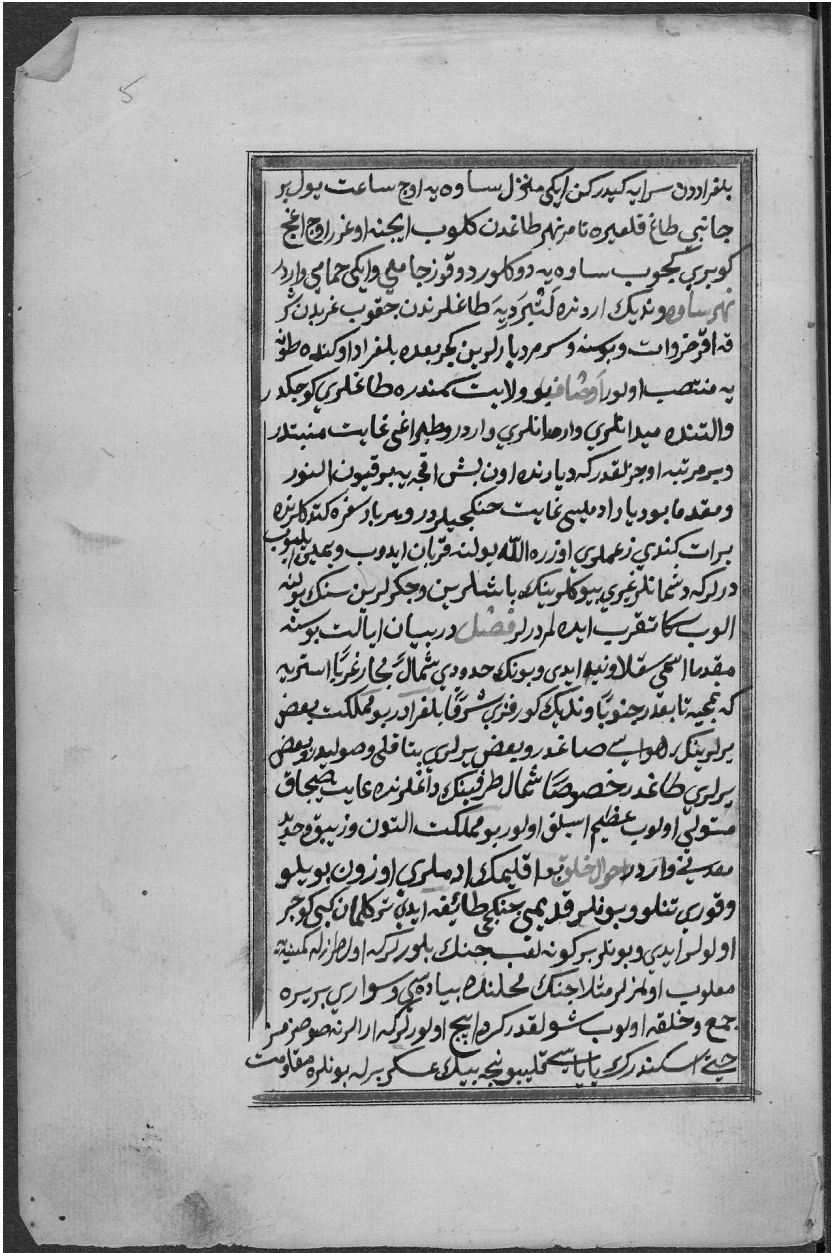 5
بلغراددن سرايه كيدركن ايكي منزل ساوه يه اوج ساعت يول بر
جانبي طاغ قلميره نام نهر طاغدن كلوب ايچنه اوغرر اوج اغج
كوپري كچوب ساوه يه دوكلور دوقوز جامع وايكي حمامي واردر
نهر ساوه ونديك اردنده طاغلرندن چقوب غربدن شر
قه اقر خروات وبوسنه وسرم ديارلرين كچر بعده بلغراد اوكنده طونه
يه منتصب اولور اوصاف بو ولايت كمندره طاغلري كوچكدر
والتنده ميدانلري وارمانلري واردر وطپراغي غايت منبتدر
وبر مرتبه اوجزلقدر كه ديارنده اون بش اقچه يه بر قيون النور
ومقدما بو ديار ادمليسي غايت جنكجيلردر وهر بار سفره كتدكلرنده
برات كندي زعملري اوزره الله يولنه قربان ايدوب
درلركه دشمانلرغزي بيوكلرينك باشلرين وجكرلرين سنك يولنه
الوب سكا تقرب ايده لم درلر فصل در بيان ايالت بوسنه
مقدما اسمي سقلاونيه ايدي وبونك حدودي شمالا مجار غربا استريه
كه نمچيه تابعدر جنوبا ونديك كورفزي شرقا بلغرادر بو مملكت بعض
يرلرينك هواسي صاغدر وبعض يرلري بتاقلي وصوليدر وبعض
يرلري طاغدر خصوصا شمال طرفينك داغلرنده غايت صيجاق
مستولي اولوب عظيم اسيلق اولور بو مملكت التون وزيبق وحديد
معدني واردر احوال خلق بو اقليمك ادملري اوزون بويلو
وقوري تنلو وبونلر قديمي جنكجي طائفه ايدي تركلمان كبي كوچر
اولولر ايدي وبونلر بر كونه لعب جنك بلورلركه اول طرزله كمسيه
مغلوب اولمزلر مثلا جنك محلنده پياده سي وسواري بر يره
جمع وخلقه اولوب شولقدر كرم ايچ اولورلركه ارالرنه صو صزمز
حتي اسكندرك باباسي فليبو نيجه بيك عسكر برله بونلره مقاومت